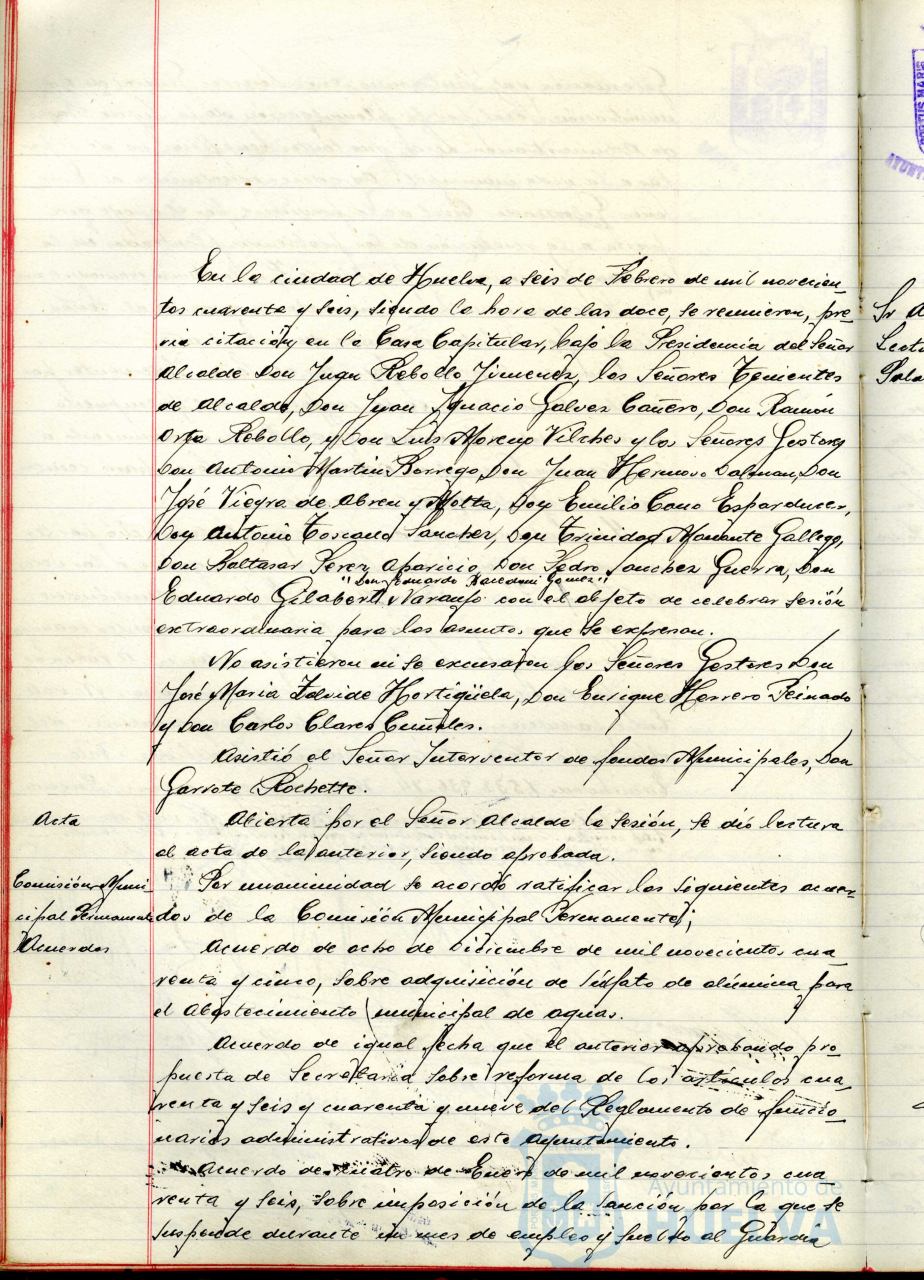 En la ciudad de Huelva, a seis de Febrero de mil novecien-
tos cuarenta y seis, siendo la hora de las doce, se reunieron, pre-
via citación, en la Casa Capitular, bajo la Presidencia del Señor
Alcalde Don Juan Rebollo Jimenez, los Señores Tenientes
de Alcalde, Don Juan Ignacio Galvez Cañero, Don Ramón
Orta Rebollo, y Don Luis Moreno Vilches y los Señores Gestores
Don Antonio Martin Borrego, Don Juan Hermoso Dalman, Don
José Vieyra de Abreu y Motta, Don Emilio Cano Esparducer,
Don Antonio Toscano Sanchez, Don Trinidad Amante Gallego,
Don Baltasar Perez Aparicio, Don Pedro Sanchez Guerra, Don
"Don Eduardo Gomez"
Eduardo Gilabert Naranjo con el objeto de celebrar sesión
extraordinaria para los asuntos que se expresan.
No asistieron ni se excusaron los Señores Gestores Don
José Maria Hortigüela, Don Enrique Herrero Peinado
y Don Carlos Clares
Asistió el Señor Interventor de fondos Municipales, Don
Garrote Rochette.
Acta
Abierta por el Señor Alcalde la sesión, se dió lectura
al acta de la anterior, siendo aprobada.
Comisión Muni
cipal Permanente
Acuerdos
Por unanimidad se acordó ratificar los siguientes acuer-
dos de la Comisión Municipal Permanente;
Acuerdo de ocho de Diciembre de mil novecientos cua-
renta y cinco, sobre adquisición de sulfato de alúmina para
el Abastecimiento municipal de aguas.
Acuerdo de igual fecha que el anterior aprobando pro-
puesta de Secretaria sobre reforma de los artículos cua-
renta y seis y cuarenta y nueve del Reglamento de funcio-
narios administrativos de este Ayuntamiento.
Acuerdo de cuatro de Enero de mil novecientos cua-
renta y seis, sobre imposición de la sanción por la que se
suspende durante un mes de empleo y sueldo al Guardia
Ayuntamiento de
HUELVA